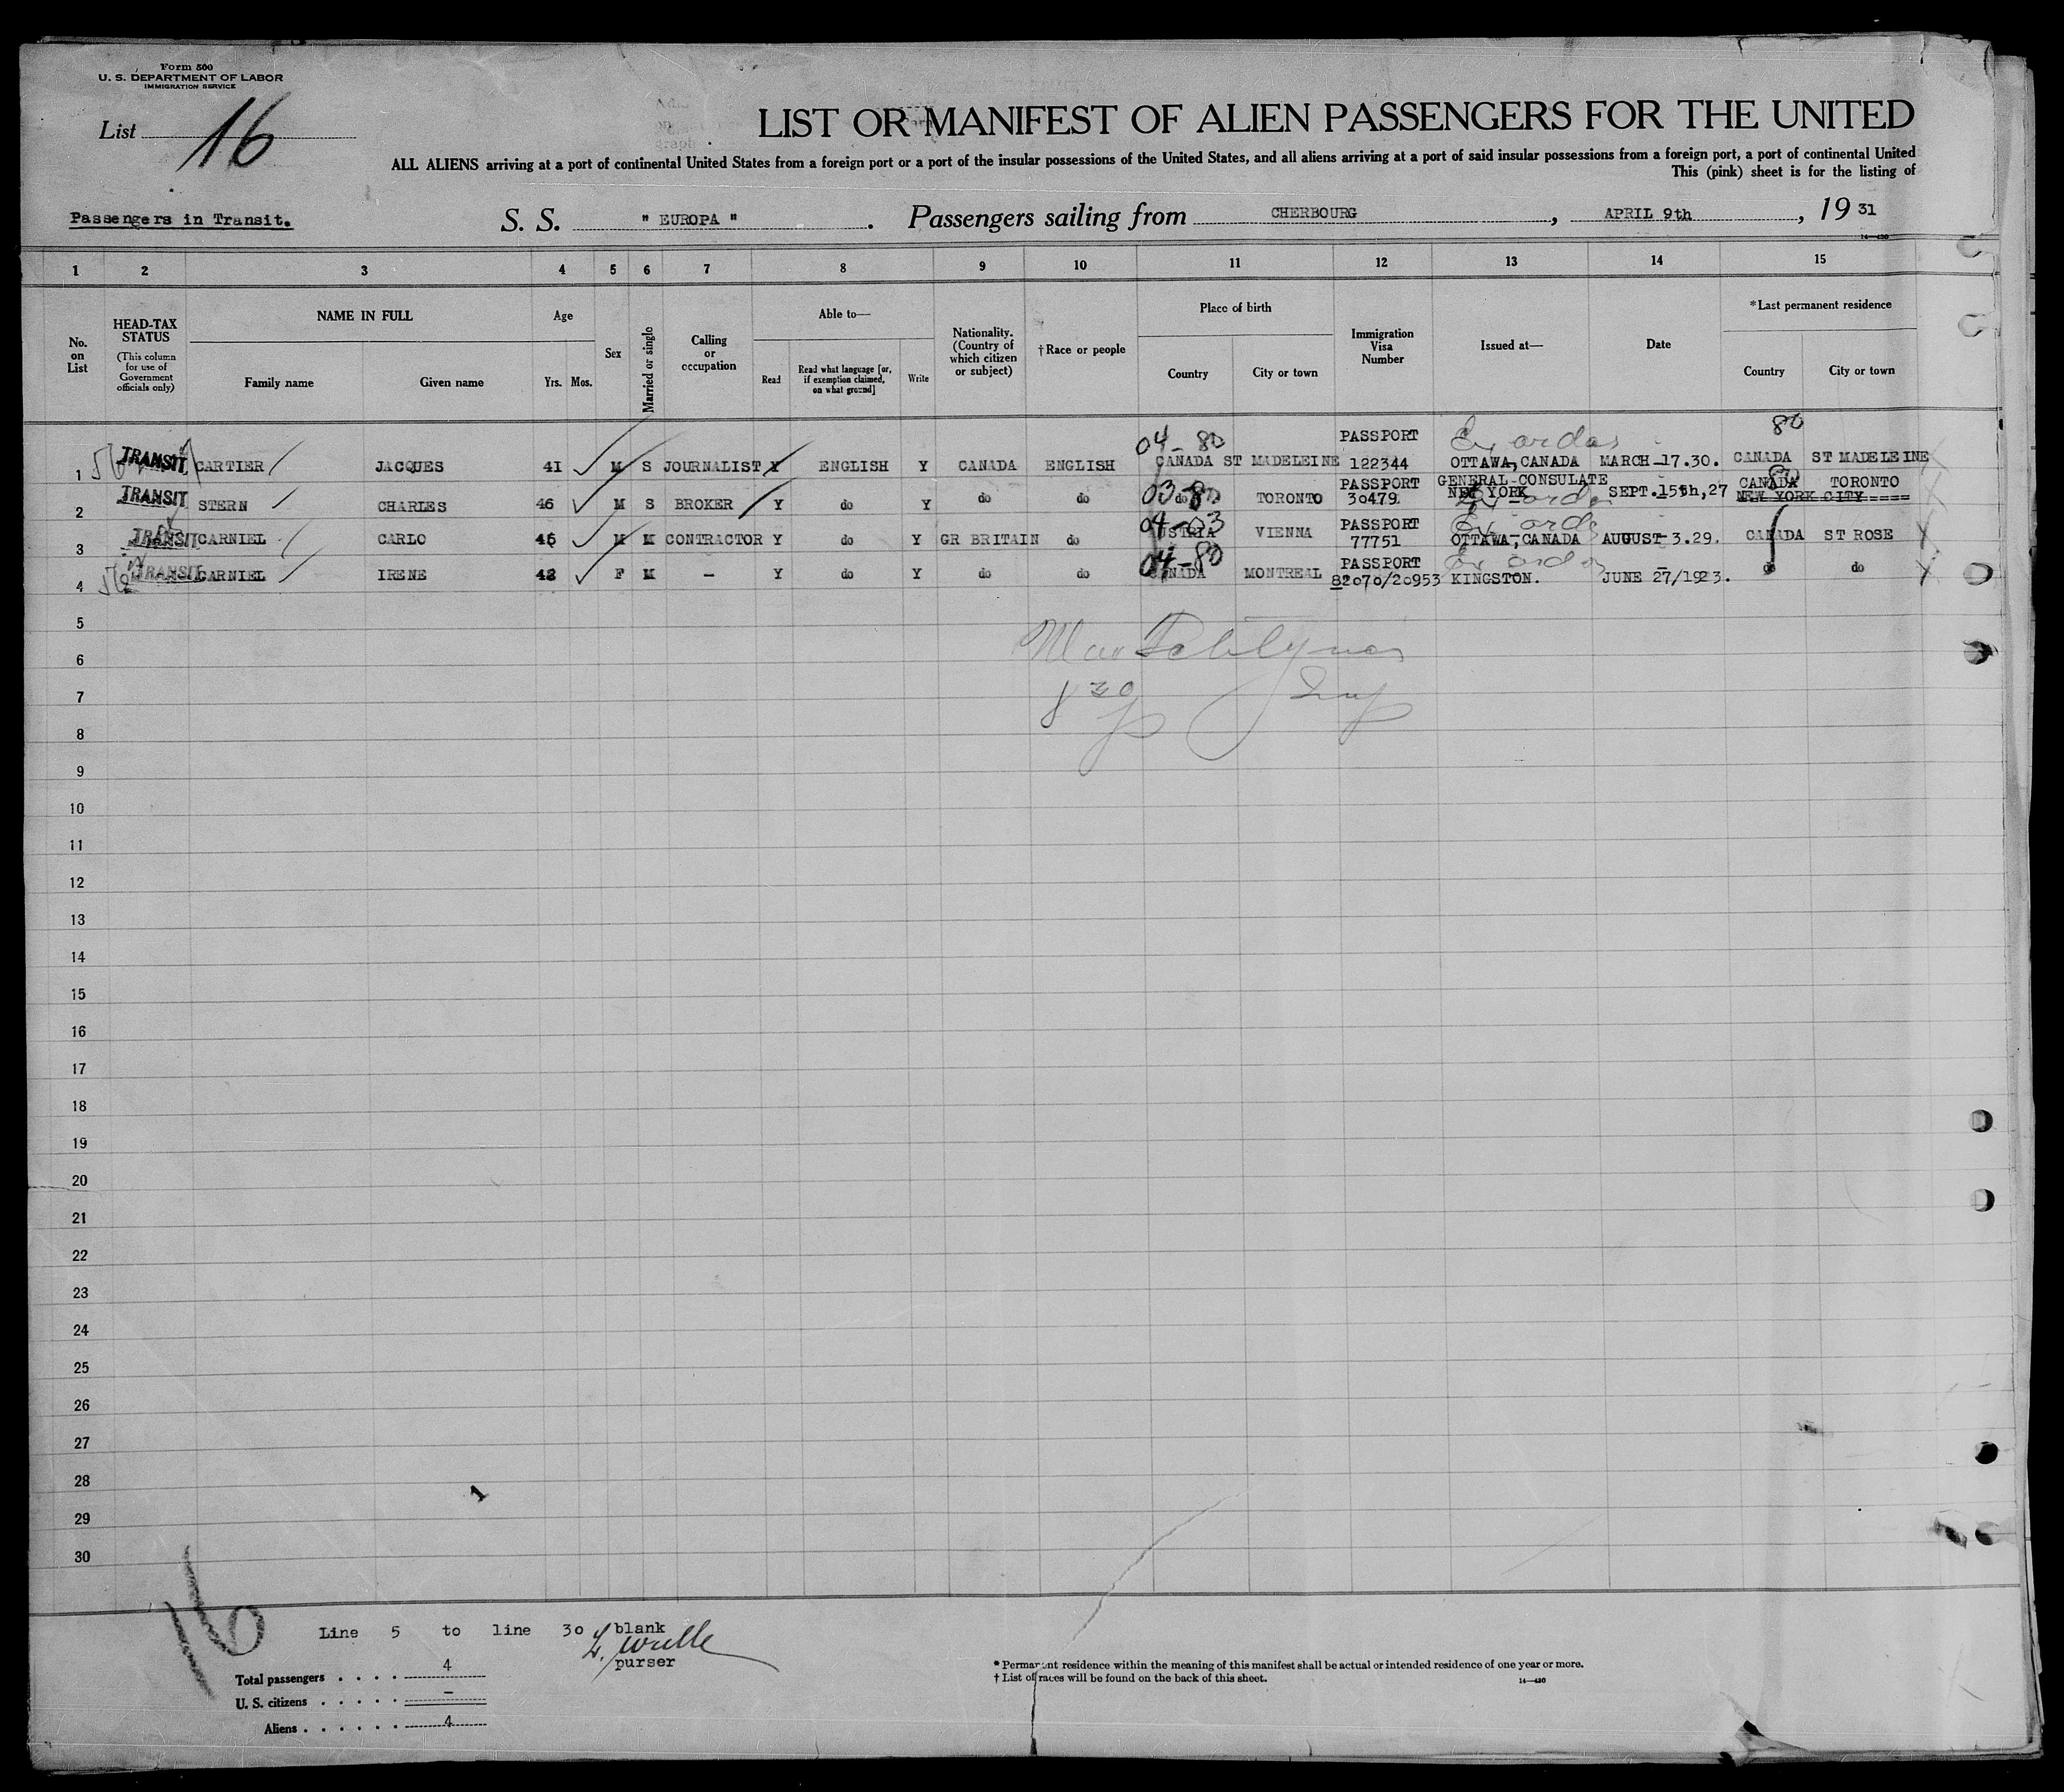 Form 500
U. S. DEPARTMENT OF LABOR
IMMIGRATION SERVICE
List 16
LIST OR MANIFEST OF ALIEN PASSENGERS FOR THE UNITED
ALL ALIENS arriving at a port of continental United States from a foreign port or a port of the insular possessions of the United States, and all aliens arriving at a port of said insular possessions from a foreign port, a port of continental United
This (pink) sheet is for the listing of
Passengers in Transit. S. S. " EUROPA ". Passengers sailing from CHERBOURG, APRIL 9th, 19 31
14—430
1 2 3 4 5 6 7 8 9 10 11 12 13 14 15
No. on List
HEAD-TAX STATUS (This column for use of Government officials only)
NAME IN FULL
Family name Given name
Age
Yrs. Mos.
Sex
Married or single
Calling or occupation
Able to—
Read Read what language [or, if exemption claimed, on what ground] Write
Nationality. (Country of which citizen or subject)
†Race or people
Place of birth
Country City or town
Immigration Visa Number
Issued at—
Date
*Last permanent residence
Country City or town
04-80 PASSPORT 80
1 TRANSIT CARTIER JACQUES 41 M S JOURNALIST Y ENGLISH Y CANADA ENGLISH CANADA ST MADELEINE 122344 OTTAWA, CANADA MARCH-17.30. CANADA ST MADELEINE
PASSPORT GENERAL-CONSULATE CANADA TORONTO
2 TRANSIT STERN CHARLES 46 M S BROKER Y do Y do do 03-80 do TORONTO 30479. NEW YORK SEPT.15th,27 NEW YORK CITY
04-03 PASSPORT
3 TRANSIT CARNIEL CARLO 45 M M CONTRACTOR Y do Y GR BRITAIN do VIENNA 77751 OTTAWA, CANADA AUGUST-3.29. CANADA ST ROSE
04-80 PASSPORT
4 TRANSIT CARNIEL IRENE 42 F M - Y do Y do do CANADA MONTREAL 82070/20953 KINGSTON. JUNE 27/1923. do do
5
6
7
8
9
10
11
12
13
14
15
16
17
18
19
20
21
22
23
24
25
26
27
28
29
30
16
Line 5 to line 30 blank
purser
Total passengers . . . . 4
U. S. citizens . . . . . -
Aliens . . . . . . 4
* Permanent residence within the meaning of this manifest shall be actual or intended residence of one year or more.
† List of races will be found on the back of this sheet.
14—430